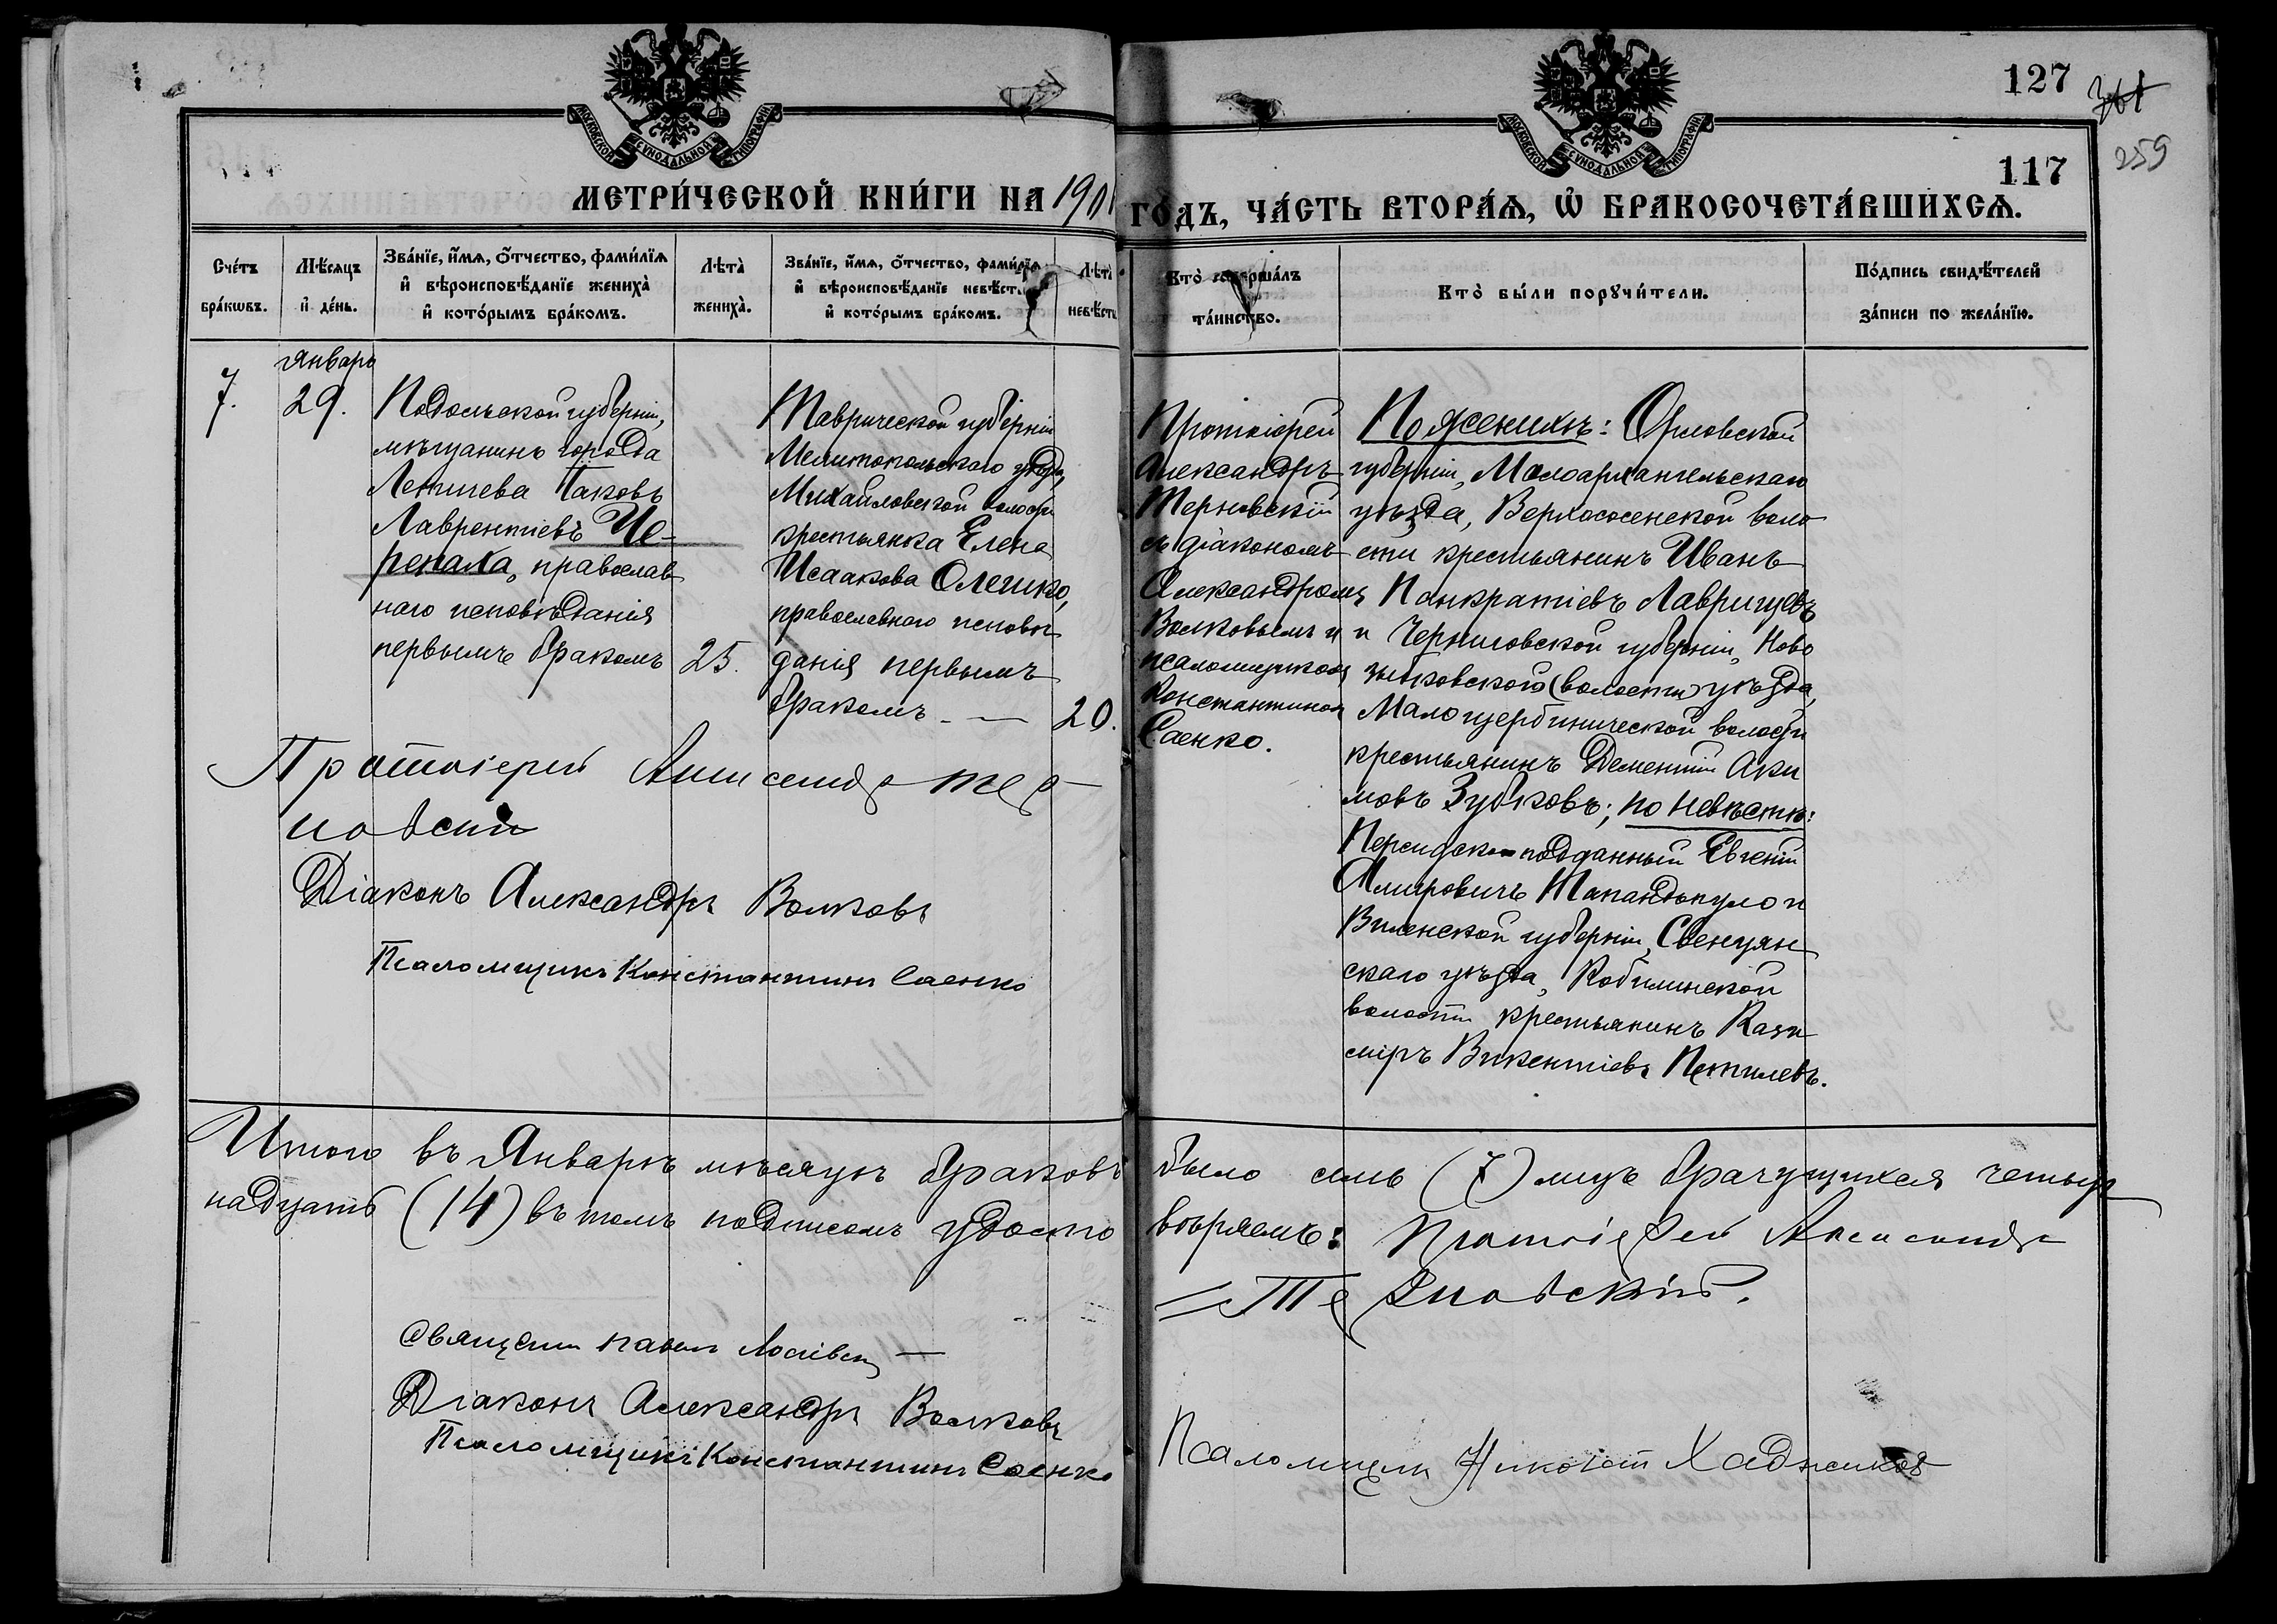 127
259
117
МОСКОВСКОЙ СѴНОДАЛЬНОЙ ТИПОГРАФІИ
МОСКОВСКОЙ СѴНОДАЛЬНОЙ ТИПОГРАФІИ
МЕТРИ́ЧЕСКОЙ КНИ́ГИ НА 1901
ГО́ДЪ, ЧА́СТЬ ВТОРА́Ѧ, Ѡ҆ БРАКОСОЧЕТА́ВШИХСѦ.
Сче́тъ
бра́кѡвъ.
Мѣ́сѧцъ
и҆ де́нь.
Зва́нїе, и҆́мѧ, ѻ҆́тчество, фами́лїѧ
и҆ вѣроисповѣ́данїе жениха̀
и҆ кото́рымъ бра́комъ.
Лѣта̀
жениха̀.
Зва́нїе, и҆́мѧ, ѻ҆́тчество, фами́лїѧ
и҆ вѣроисповѣ́данїе невѣ́сты
и҆ кото́рымъ бра́комъ.
Лѣта̀
невѣ́сты
Кто̀ соверша́лъ
та́инство.
Кто̀ бы́ли порꙋчи́тели.
По́дпись свидѣ́телей
за́писи по жела́нїю.
7.
Январь
29.
Подольской губерніи,
мѣщанинъ города
Летичева Іаковъ
Лаврентіевъ Че-
репаха, православ
наго исповѣданія
первымъ бракомъ
25.
Таврической губерніи
Мелитопольскаго уѣзда,
Михайловской волости
крестьянка Елена
Исаакова Олешко,
православнаго исповѣ
данія первымъ
бракомъ - —
20.
Протоіерей
Александръ
Терновскій
съ діакономъ
Александромъ
Волковымъ и
псаломщикомъ
Константиномъ
Саенко.
По женихѣ: Орловской
губерніи, Малоархангельскаго
уѣзда, Верхососенской воло
сти крестьянинъ Иванъ
Панкратіевъ Лаврищевъ
и Черниговской губерніи, Ново
зыбковского (волости) уѣзда,
Малощербиничской волости
крестьянинъ Дементій Аки
мовъ Зубковъ; по невѣстѣ:
Персидско-подданный Евгеній
Амировичъ Тапандопуло и
Виленской губерніи, Свенцян
скаго уѣзда, Кобылинской
волости крестьянинъ Кази
міръ Викентіевъ Петилевъ.
Протоіерей Александръ Тер
новскій
Діаконъ Александръ Волковъ
Псаломщикъ Константинъ Саенко
Итого въ Январѣ мѣсяцѣ браковъ было семь (7) лицъ брачущихся четыр
надцать (14) въ томъ подписомъ удосто вѣряемъ: Протоіерей Александръ
Терновскій.
Священникъ Павелъ
Діаконъ Александръ Волковъ
Псаломщикъ Константинъ Саенко
Псаломщикъ Николай Хаджинов